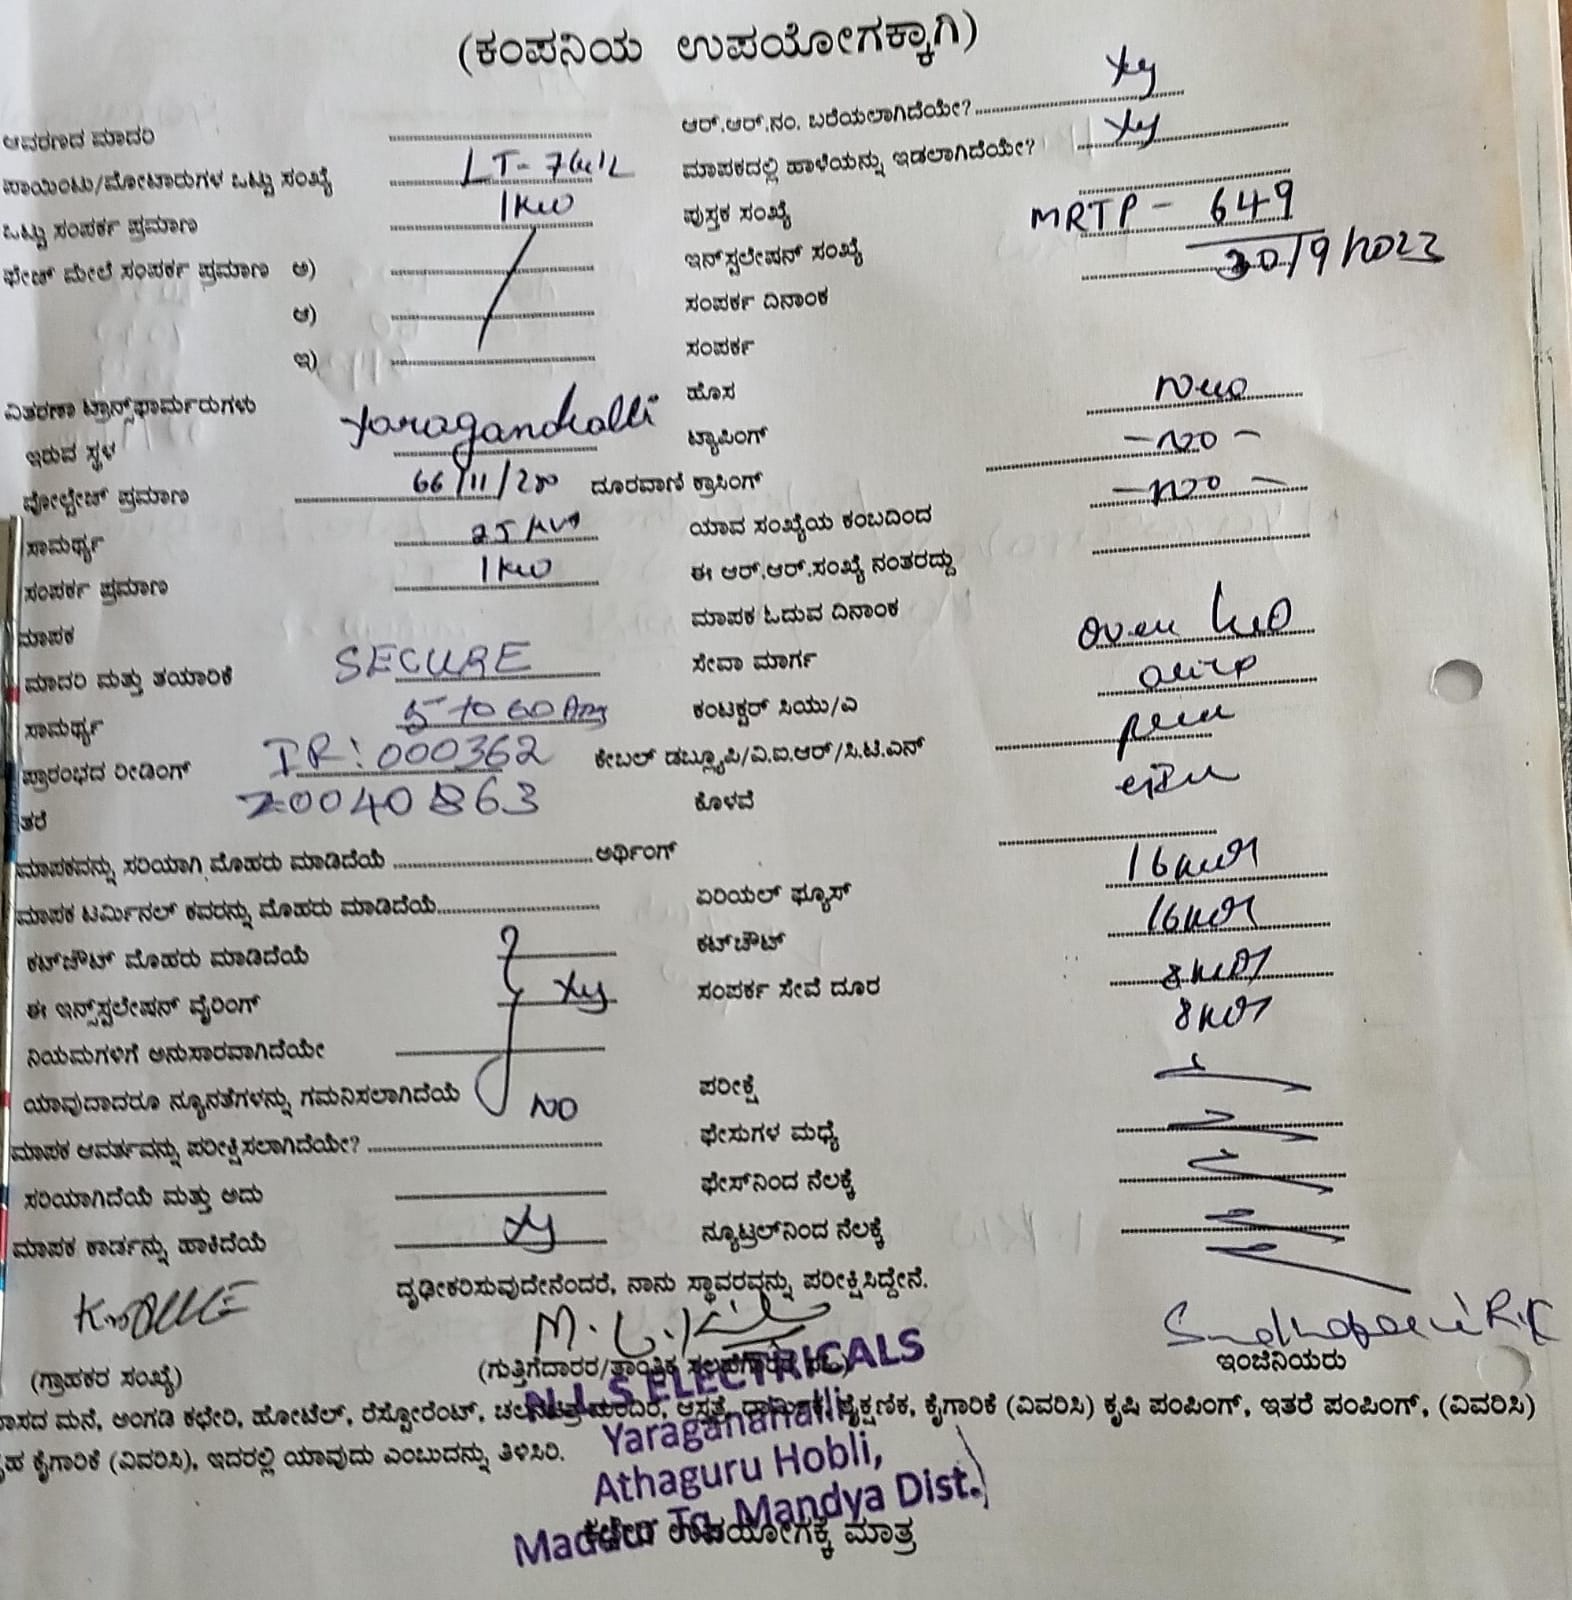 (ಕಂಪನಿಯ ಉಪಯೋಗಕ್ಕಾಗಿ)
ಆವರಣದ ಮಾದರಿ ಆರ್.ಆರ್.ನಂ. ಬರೆಯಲಾಗಿದೆಯೇ?
ಪಾಯಿಂಟು/ಮೋಟಾರುಗಳ ಒಟ್ಟು ಸಂಖ್ಯೆ LT- ಮಾಪಕದಲ್ಲಿ ಹಾಳೆಯನ್ನು ಇಡಲಾಗಿದೆಯೇ?
ಒಟ್ಟು ಸಂಪರ್ಕ ಪ್ರಮಾಣ 1KW ಪುಸ್ತಕ ಸಂಖ್ಯೆ
ಫೇಜ್ ಮೇಲೆ ಸಂಪರ್ಕ ಪ್ರಮಾಣ ಅ) ಇನ್‌ಸ್ಟಲೇಷನ್ ಸಂಖ್ಯೆ MRTP - 649
ಆ) ಸಂಪರ್ಕ ದಿನಾಂಕ 30/9/2023
ಇ) ಸಂಪರ್ಕ
ವಿತರಣಾ ಟ್ರಾನ್ಸ್‌ಫಾರ್ಮರುಗಳು ಹೊಸ New
ಇರುವ ಸ್ಥಳ Yaraganahalli ಟ್ಯಾಪಿಂಗ್ - NO -
ವೋಲ್ಟೇಜ್ ಪ್ರಮಾಣ 66/11/ ದೂರವಾಣಿ ಕ್ರಾಸಿಂಗ್ - NO -
ಸಾಮರ್ಥ್ಯ 25 KVA ಯಾವ ಸಂಖ್ಯೆಯ ಕಂಬದಿಂದ
ಸಂಪರ್ಕ ಪ್ರಮಾಣ 1KW ಈ ಆರ್.ಆರ್.ಸಂಖ್ಯೆ ನಂತರದ್ದು
ಮಾಪಕ ಮಾಪಕ ಓದುವ ದಿನಾಂಕ
ಮಾದರಿ ಮತ್ತು ತಯಾರಿಕೆ SECURE ಸೇವಾ ಮಾರ್ಗ over
ಸಾಮರ್ಥ್ಯ 5 to 60 Amp ಕಂಟಕ್ಟರ್ ಸಿಯು/ಎ
ಪ್ರಾರಂಭದ ರೀಡಿಂಗ್ IR: 000362 ಕೇಬಲ್ ಡಬ್ಲ್ಯೂಪಿ/ವಿ.ಐ.ಆರ್/ಸಿ.ಟಿ.ಎನ್
ತರೆ 20040863 ಕೊಳವೆ
ಮಾಪಕವನ್ನು ಸರಿಯಾಗಿ ಮೊಹರು ಮಾಡಿದೆಯೆ ಅರ್ಥಿಂಗ್
ಮಾಪಕ ಟರ್ಮಿನಲ್ ಕವರನ್ನು ಮೊಹರು ಮಾಡಿದೆಯೆ ಏರಿಯಲ್ ಫ್ಯೂಸ್
ಕಟ್‌ಔಟ್ ಮೊಹರು ಮಾಡಿದೆಯೆ ಕಟ್‌ಔಟ್
ಈ ಇನ್ಸ್‌ಸ್ಟಲೇಷನ್ ವೈರಿಂಗ್ ಸಂಪರ್ಕ ಸೇವೆ ದೂರ
ನಿಯಮಗಳಿಗೆ ಅನುಸಾರವಾಗಿದೆಯೇ
ಯಾವುದಾದರೂ ನ್ಯೂನತೆಗಳನ್ನು ಗಮನಿಸಲಾಗಿದೆಯೆ NO ಪರೀಕ್ಷೆ
ಮಾಪಕ ಆವರ್ತವನ್ನು ಪರೀಕ್ಷಿಸಲಾಗಿದೆಯೇ? ಫೇಸುಗಳ ಮಧ್ಯೆ
ಸರಿಯಾಗಿದೆಯೆ ಮತ್ತು ಅದು ಫೇಸ್‌ನಿಂದ ನೆಲಕ್ಕೆ
ಮಾಪಕ ಕಾರ್ಡನ್ನು ಹಾಕಿದೆಯೆ ನ್ಯೂಟ್ರಲ್‌ನಿಂದ ನೆಲಕ್ಕೆ
ದೃಢೀಕರಿಸುವುದೇನೆಂದರೆ, ನಾನು ಸ್ಥಾವರವನ್ನು ಪರೀಕ್ಷಿಸಿದ್ದೇನೆ.
(ಗ್ರಾಹಕರ ಸಂಖ್ಯೆ) (ಗುತ್ತಿಗೆದಾರರ/ತಾಂತ್ರಿಕ ಇಂಜಿನಿಯರು
N.L.S ELECTRICALS
ಮನೆ, ಅಂಗಡಿ ಕಛೇರಿ, ಹೋಟೆಲ್, ರೆಸ್ಟೋರೆಂಟ್, ಚಲನಚಿತ್ರ ಮಂದಿರ, ಆಸ್ಪತ್ರೆ, ಧಾರ್ಮಿಕ, ಶೈಕ್ಷಣಿಕ, ಕೈಗಾರಿಕೆ (ವಿವರಿಸಿ) ಕೃಷಿ ಪಂಪಿಂಗ್, ಇತರೆ ಪಂಪಿಂಗ್, (ವಿವರಿಸಿ)
Yaraganahalli
ಕೈಗಾರಿಕೆ (ವಿವರಿಸಿ), ಇದರಲ್ಲಿ ಯಾವುದು ಎಂಬುದನ್ನು ತಿಳಿಸಿರಿ.
Athaguru Hobli,
Maddur Tq, Mandya Dist.
ಕಛೇರಿ ಉಪಯೋಗಕ್ಕೆ ಮಾತ್ರ